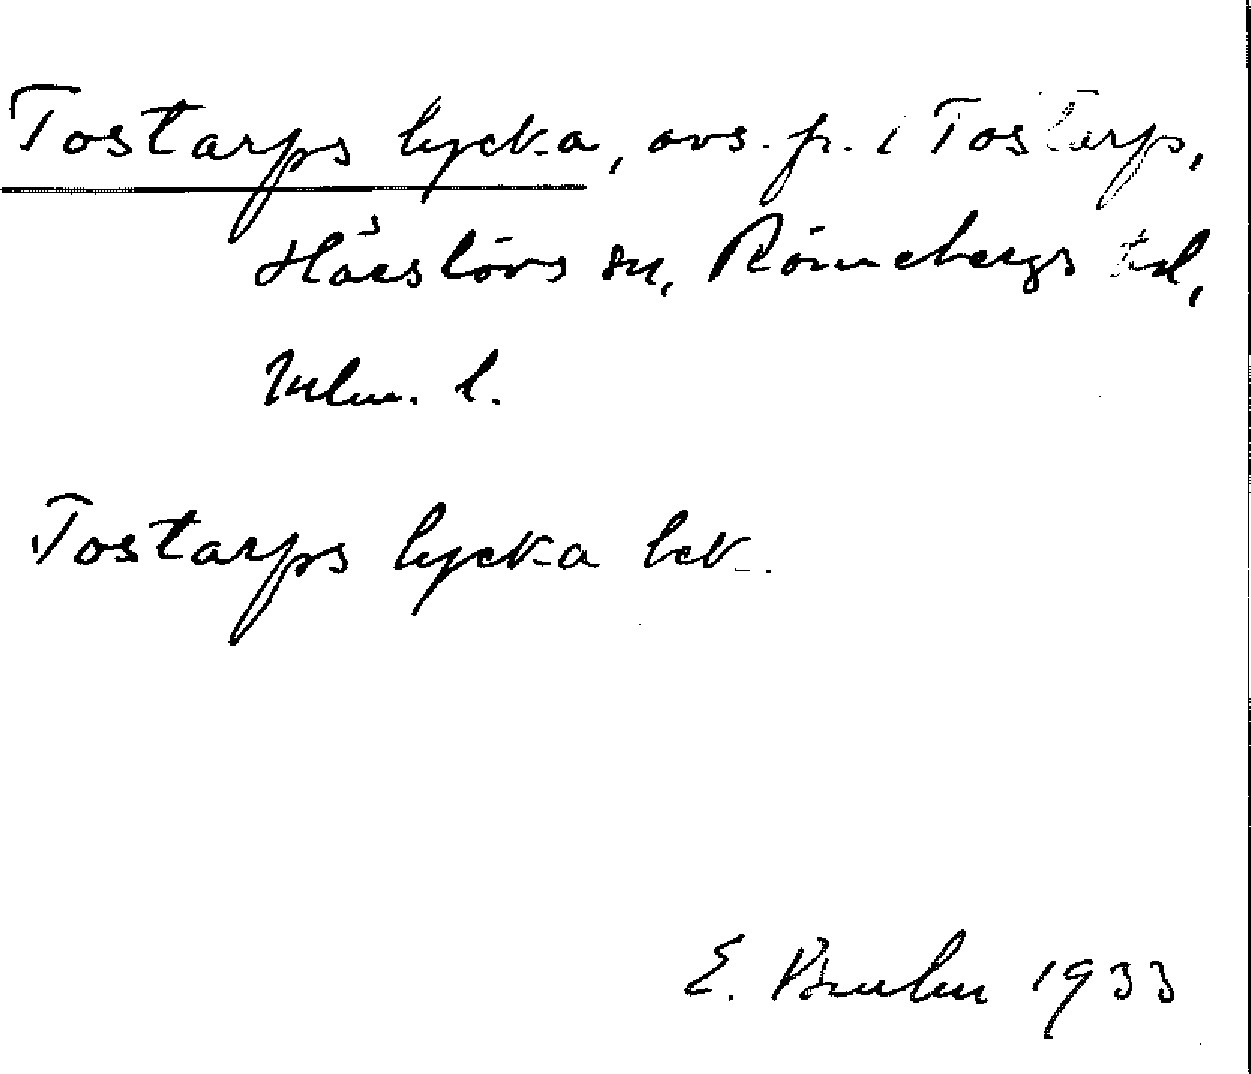 Tostarps lycka, avs. fr. i Tostarp,
Håslövs sn, Rönnebergs hd,
Mlm. l.
Tostarps lycka lek.
E. Bruhn 1933